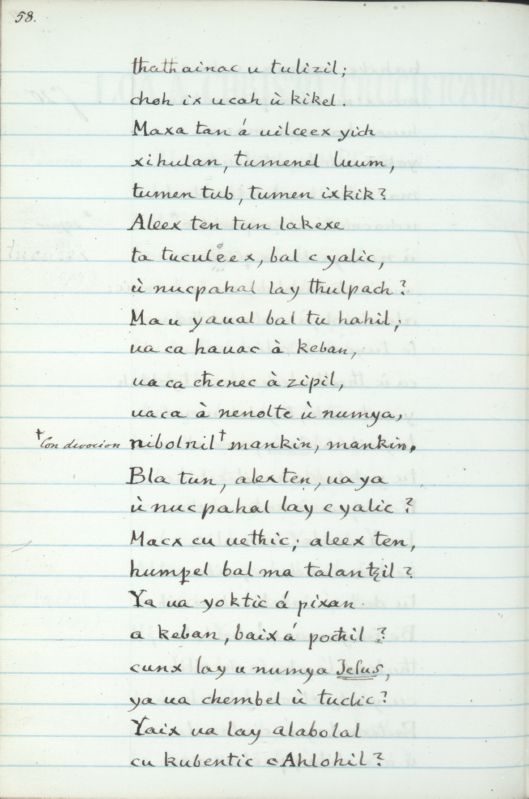 58.
thathainac u tulizil;
choh ix ucah ù kikel.
Maxa tan á uilceex yich
xihulan, tumenel luum,
tumen tub, tumen ixkik?
Aleex ten tun lakexe
ta tucul̊eex, bal c yalic,
ù nucpahal lay thulpach?
Ma u yaual bal tu hahil;
ua ca hauac à keban,
ua ca chenec à zipil,
uaca à nenolte ù numya,
†Con devocion nibolnil† mankin, mankin.
Bla tun, alex ten, ua ya
ù nucpahal lay c yalic?
Macx cu uethic; aleex ten,
humpel bal ma talantzil?
Ya ua yoktic á pixan
a keban, baix á pochil?
cunx lay u numya Jesus,
ya ua chembel ù tuclic?
Yaix ua lay alabolal
cu kubentic c Ahlohil?